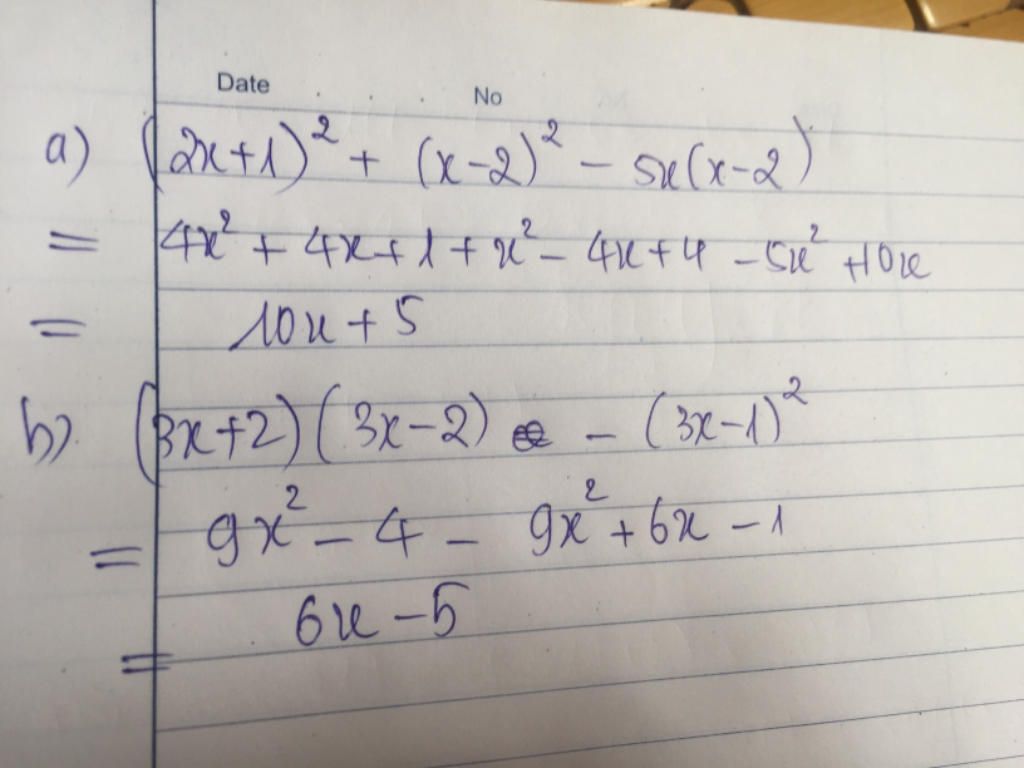 Date No
a) (2x+1)² + (x-2)² - 5x(x-2)
= 4x² + 4x+1 + x² - 4x+4 - 5x² +10x
= 10x + 5
b) (3x+2)(3x-2) - (3x-1)²
= 9x² - 4 - 9x² + 6x - 1
= 6x - 5